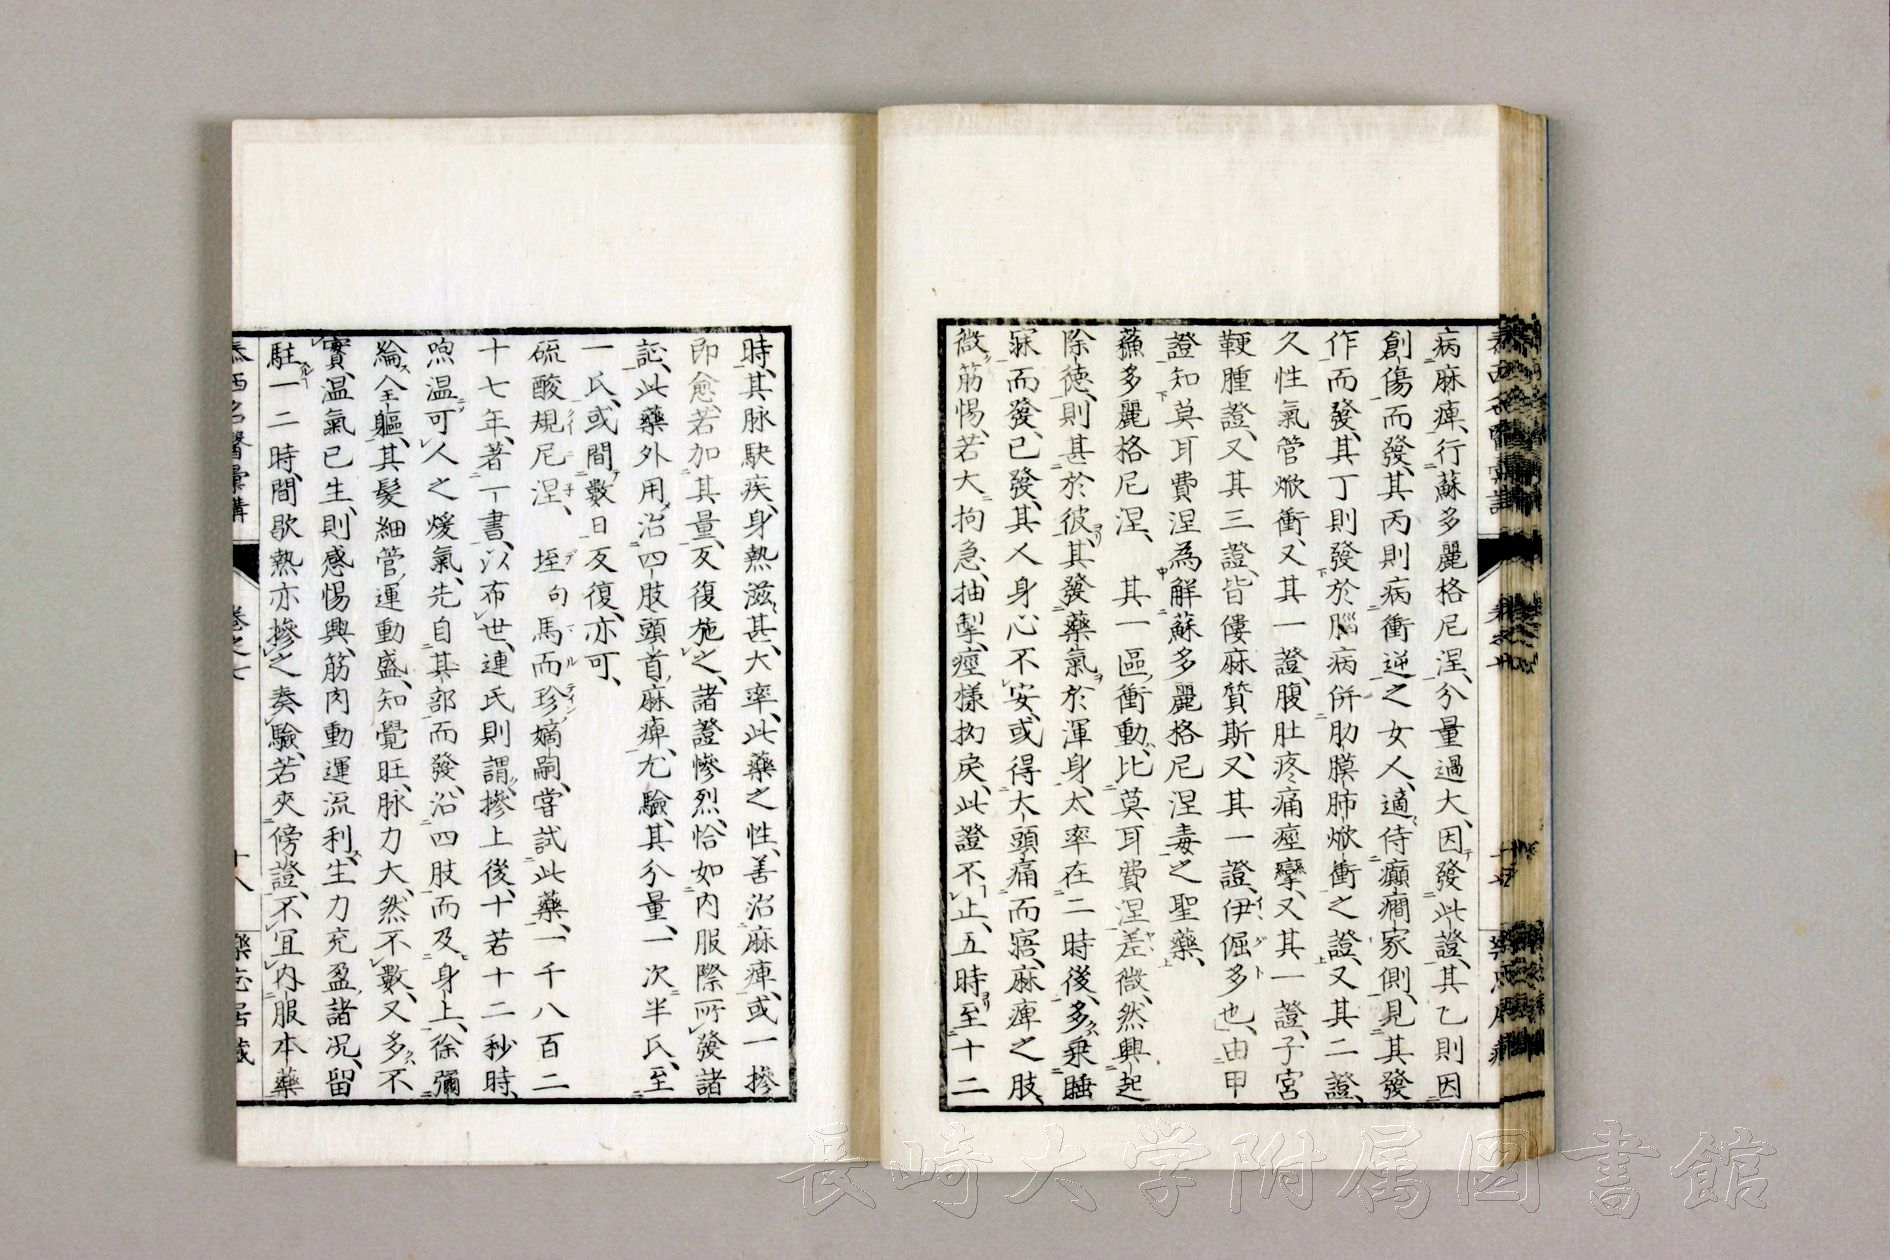 病麻痺、行蘇多麗格尼涅、分量過大、因發此證、其乙則因
創傷而發、其丙則病衝逆之女人、適侍癲癇家側、見其發
作而發、其丁則發於腦病併肋膜肺焮衝之證、又其二證、
久性氣管焮衝、又其一證、腹肚疼痛痙攣、又其一證、子宮
鞕腫證、又其三證、皆僂麻質斯、又其一證、伊倔多也、由甲
證知莫耳費涅為解蘇多麗格尼涅毒之聖藥、
蘓多麗格尼涅、其一區衝動、比莫耳費涅差微、然興起
除德、則甚於彼、其發藥氣於渾身、大率在二時後、多乗睡
寐而發、已發、其人身心不安、或得大頭痛而寤、麻痺之肢、
微筋惕、若大拘急、抽掣、痙樣拘戾、此證不止、五時至十二
時、其脉駃疾、身熱滋甚、大率、此藥之性、善治麻痺、或一摻
即愈、若加其量、反復施之、諸證慘烈、恰如内服際所發諸
證、此藥外用、治四肢頭首麻痺、尤驗、其分量、一次半氏、至
一氏、或間數日反復、亦可、
硫酸規尼涅、垤句馬而珍嫡嗣、嘗試此藥、一千八百二
十七年、著一書、以布世、連氏則謂、摻上後、十若十二秒時、
煦温可人之煖氣、先自其部而發、沿四肢而及身上、徐彌
綸全軀、其髮細管運動盛、知覺旺、脉力大、然不數、又多不
實、温氣已生、則感惕興、筋肉動運流利、生力充盈、諸况、留
駐一二時、間歇熱亦摻之奏驗、若夾傍證、不宜内服本藥
泰西名醫彙講 卷之七 十八
長崎大学附属図書館